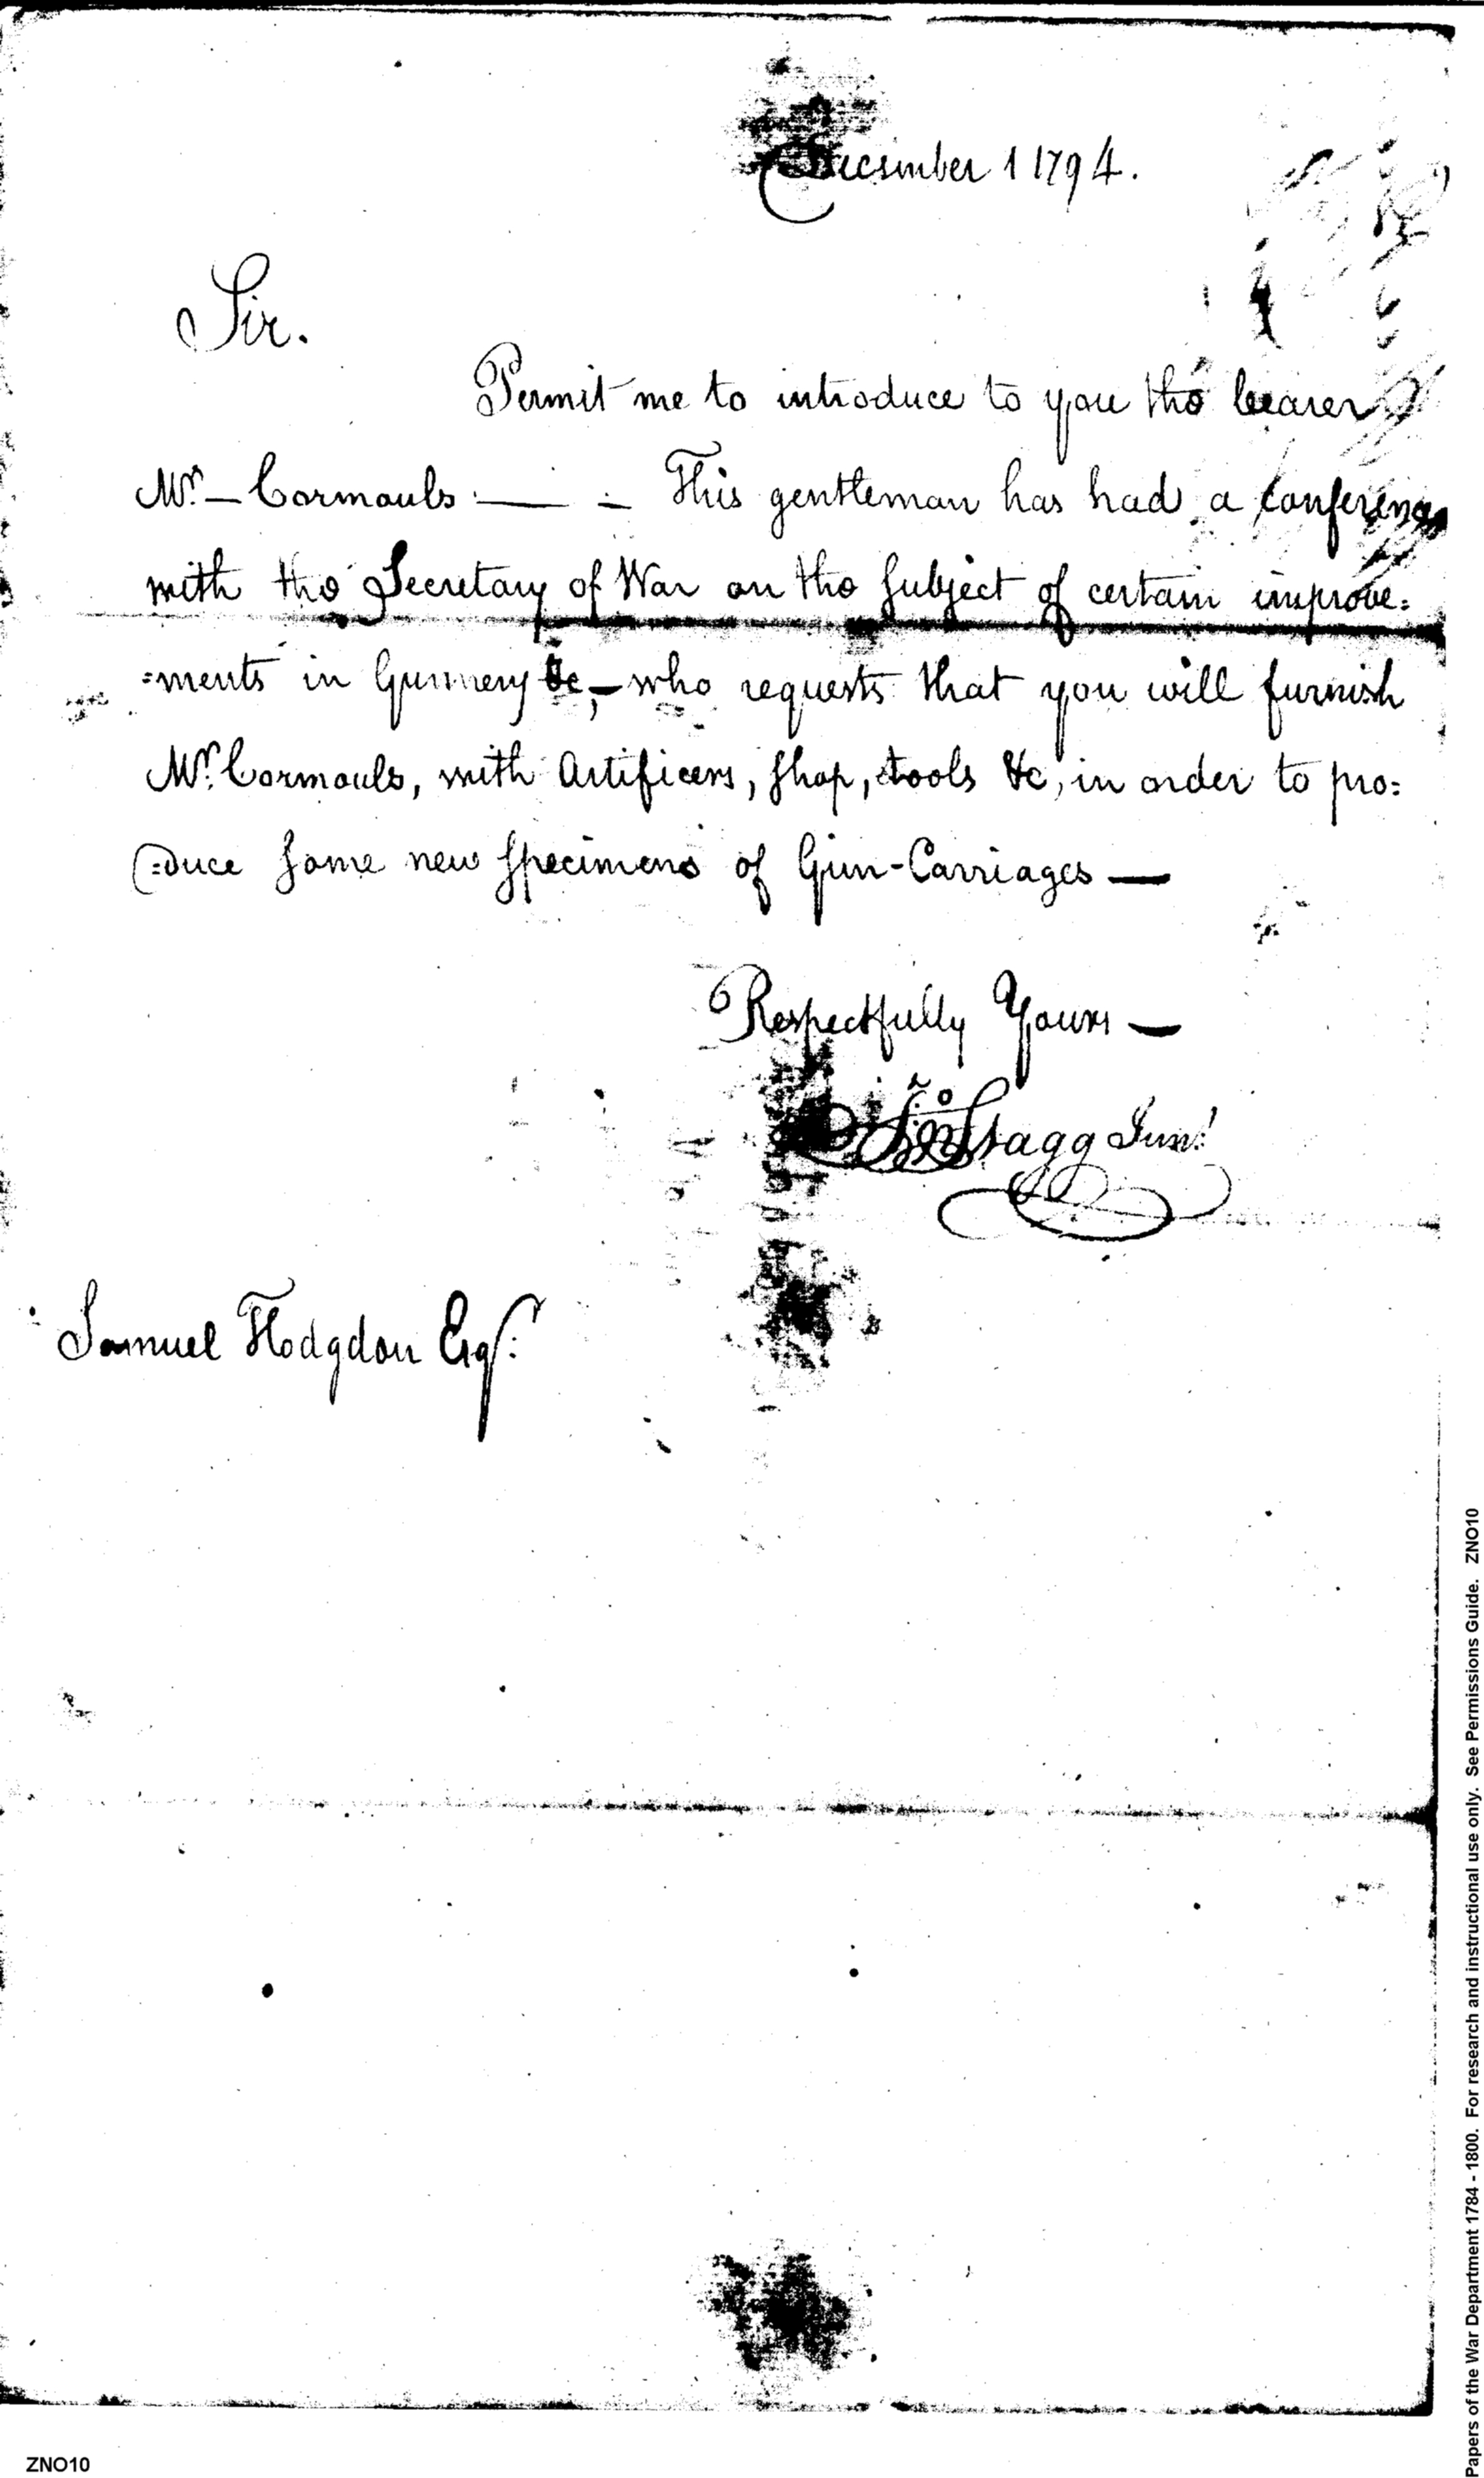 December 1 1794.
Sir.
Permit me to introduce to you the bearer
Mr. — Cormouls — — This gentleman has had a conference
with the Secretary of War on the subject of certain improve=
=ments in Gunnery &c, — who requests that you will furnish
Mr. Cormouls, with Artificers, shop, tools &c, in order to pro=
=duce some new specimens of Gun-Carriages —
Respectfully Yours —
Jno Stagg Junr
Samuel Hodgdon Esqr.
ZNO10
Papers of the War Department 1784 - 1800. For research and instructional use only. See Permissions Guide. ZNO10